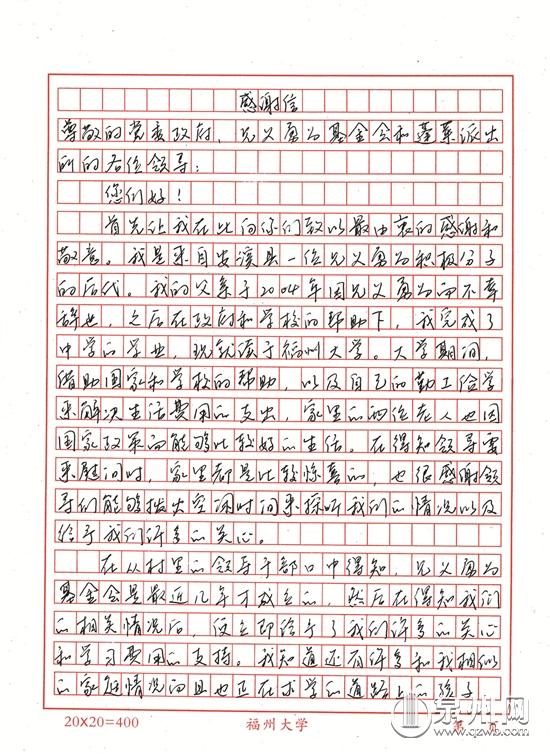 感谢信
尊敬的党委政府、见义勇为基金会和蓬莱派出
所的各位领导：
您们好！
首先让我在此向你们致以最由衷的感谢和
敬意。我是来自安溪县一位见义勇为积极分子
的后代。我的父亲于2004年因见义勇为而不幸
辞世，之后在政府和学校的帮助下，我完成了
中学的学业，现就读于福州大学。大学期间，
借助国家和学校的帮助，以及自己的勤工俭学
来解决生活费用的支出，家里的两位老人也因
国家政策而能够比较好的生活。在得知领导要
来慰问时，家里都是比较惊喜的，也很感谢领
导们能够拨大空闲时间来探听我们的情况以及
给予我们许多的关心。
在从村里的领导干部口中得知，见义勇为
基金会是最近几年才成立的，然后在得知我们
的相关情况后，便立即给予了我们许多的关心
和学习费用的支持。我知道还有许多和我相似
的家庭情况而且也正在求学的道路上的孩子
20X20=400
福州大学
第 页
泉州网
www.qzwb.com